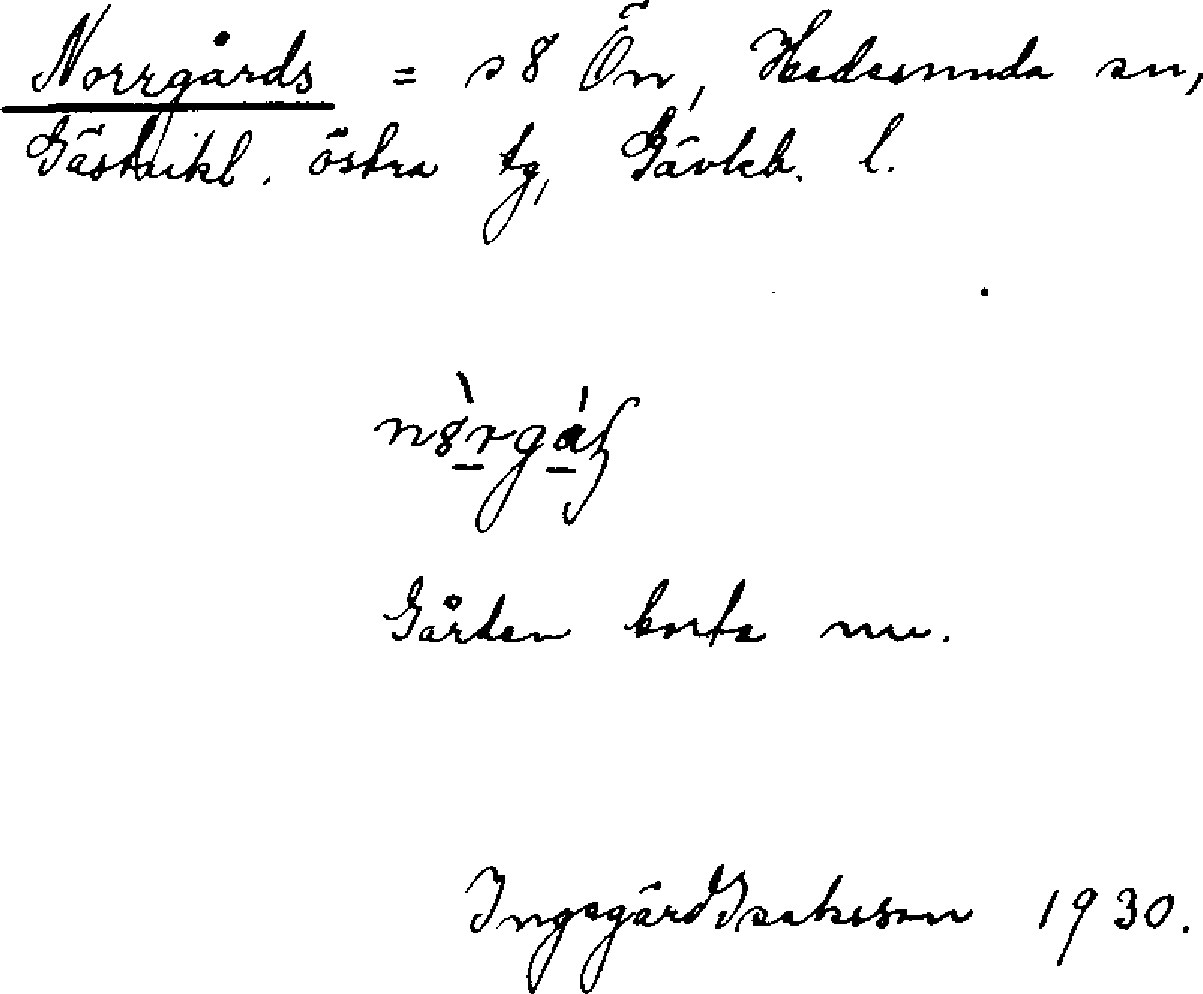 Norrgårds = s 8 Ön, Hedesunda sn,
Gästrikl. östra tg, Gävleb. l.
Gården borta nu.
Ingegärd Isaksson 1930.